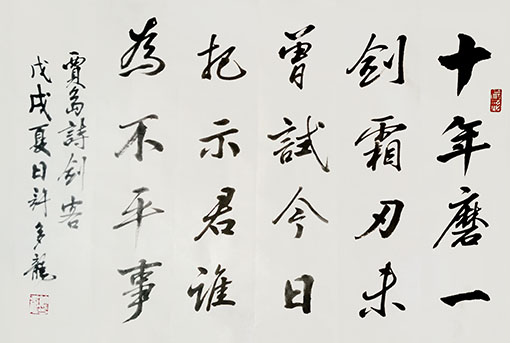 十年磨一
劍霜刃未
曾試今日
把示君誰
為不平事
賈島詩劍客
戊戌夏日許多龍